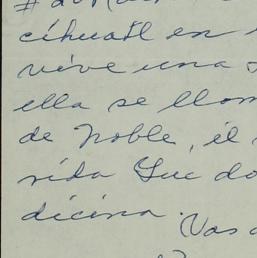 cíhuatl en
vive una
ella se llam
de Noble, el
rida Que do
dicina.
Vas a